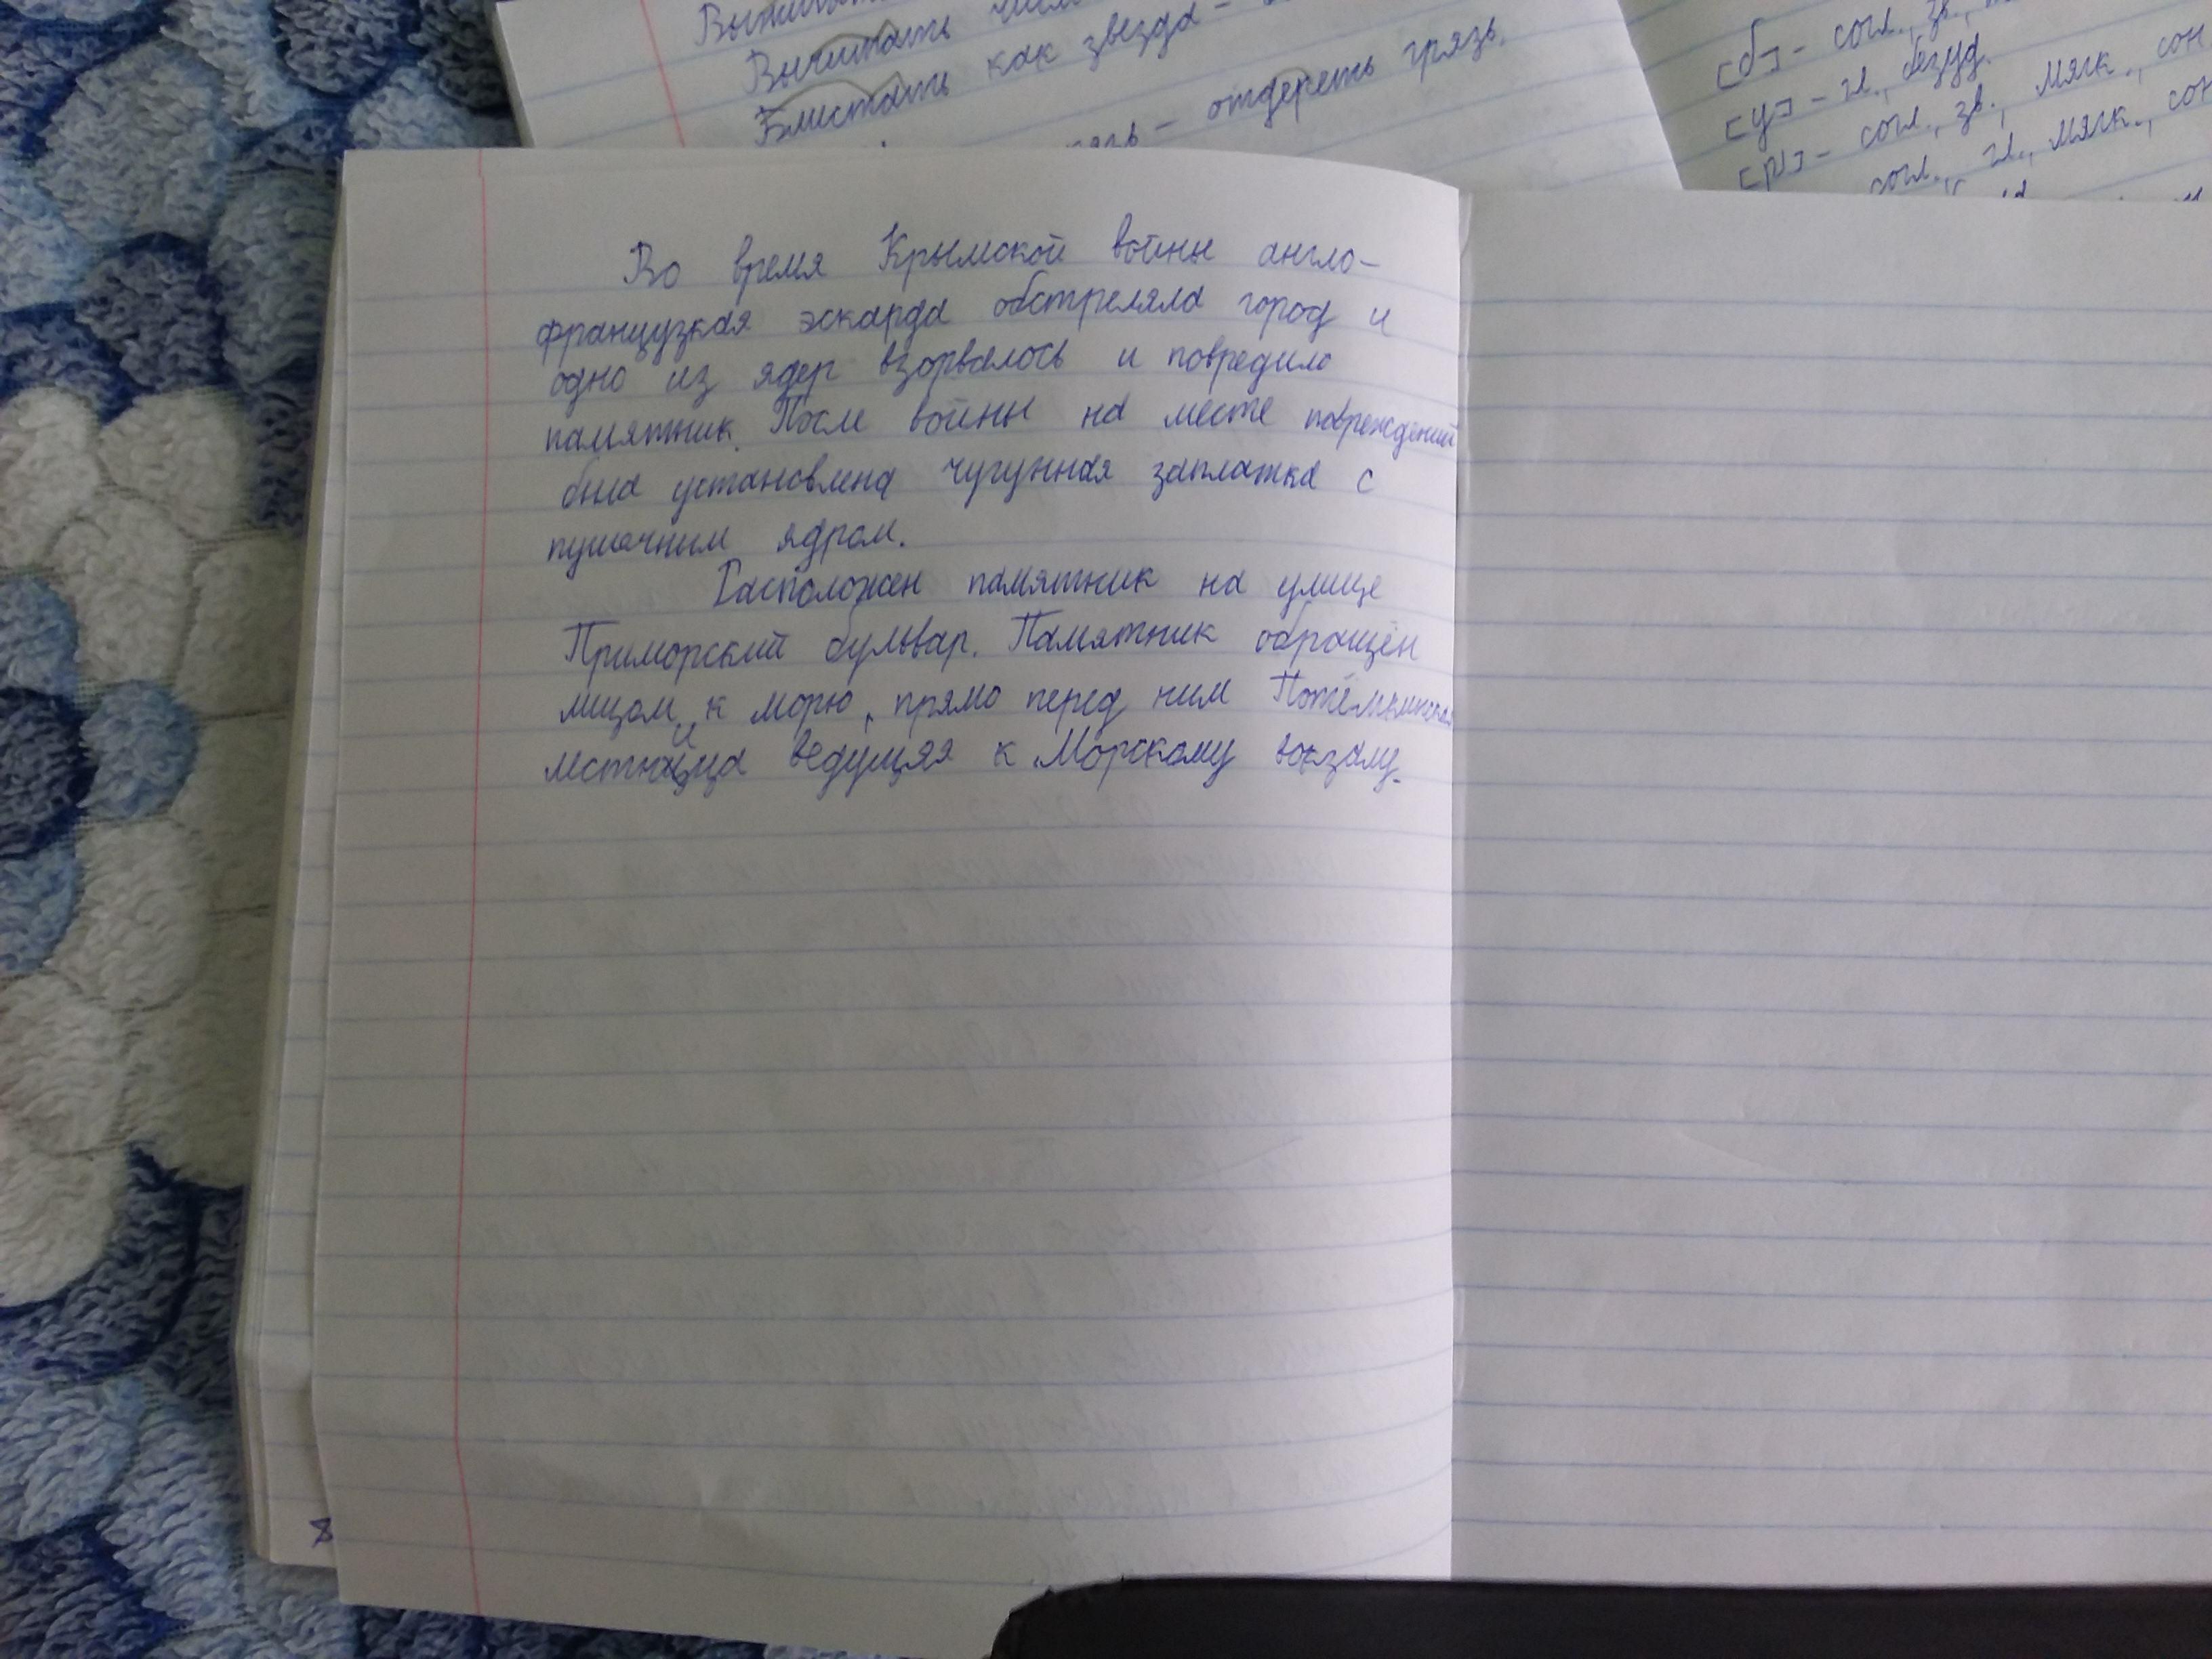 Вычитать
Блистать как звезда -
отдереть грязь.
[б] - согл., зв.,
[у] - гл., безуд.
[р] - согл., зв., мягк., сон
согл., гл., мягк., сон
Во время Крымской войны англо-
французкая эскарда обстреляла город и
одно из ядер взорвалось и повредило
памятник. После войны на месте повреждений
была установлена чугунная заплатка с
пушачним ядром.
Расположен памятник на улице
Приморский бульвар. Памятник обращён
лицом к морю, прямо перед ним Потёмкинская
лестница ведущяя к Морскому вокзалу.
8